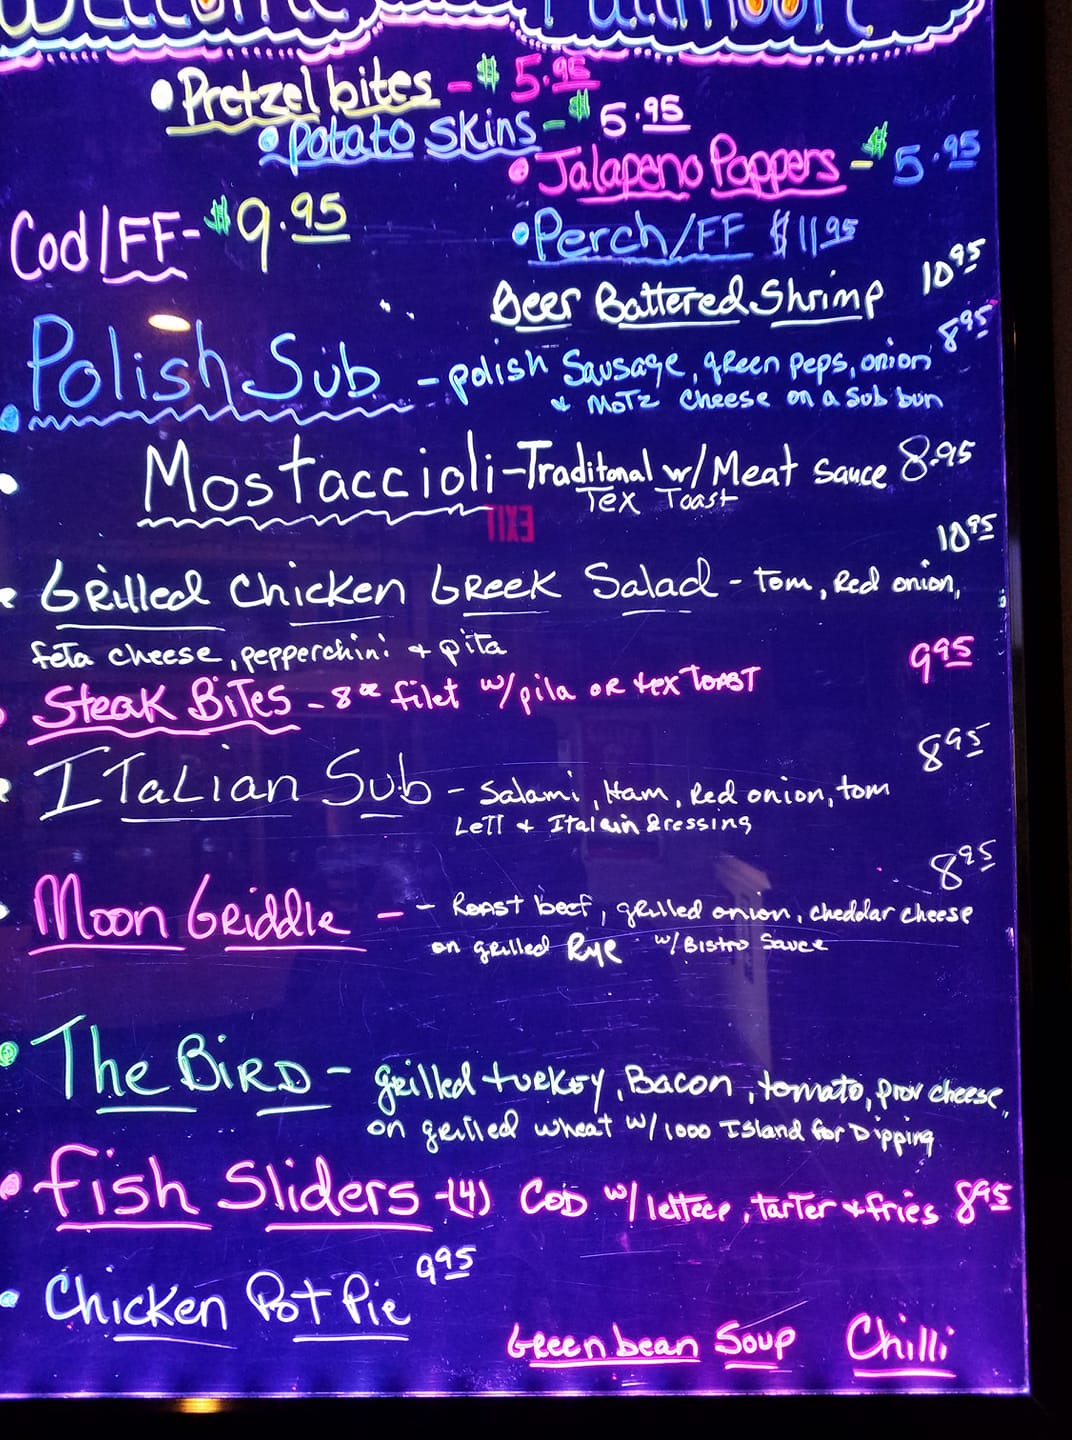 Welcome
• Pretzel bites - $5.95
• Potato Skins - $5.95
• Jalapeno Poppers - $5.95
Cod/FF - $9.95
• Perch/FF $11.95
Beer Battered Shrimp 10.95
• Polish Sub - polish Sausage, green peps, onion 8.95
& Motz cheese on a sub bun
• Mostaccioli - Traditonal w/ Meat Sauce 8.95
Tex Toast
EXIT
• Grilled Chicken Greek Salad - tom, Red onion, 10.95
feta cheese, pepperchini & pita
• Steak Bites - 8oz filet w/ pita or tex toast 9.95
• Italian Sub - Salami, Ham, Red onion, tom 8.95
Lett & Italain dressing
• Moon Griddle - - Roast beef, grilled onion, cheddar cheese 8.95
on grilled Rye w/ Bistro Sauce
• The Bird - grilled turkey, Bacon, tomato, prov cheese,
on grilled wheat w/ 1000 Island for Dipping
• Fish Sliders - (4) Cod w/ lettece, tarter & fries 8.95
• Chicken Pot Pie 9.95
Green bean Soup Chilli